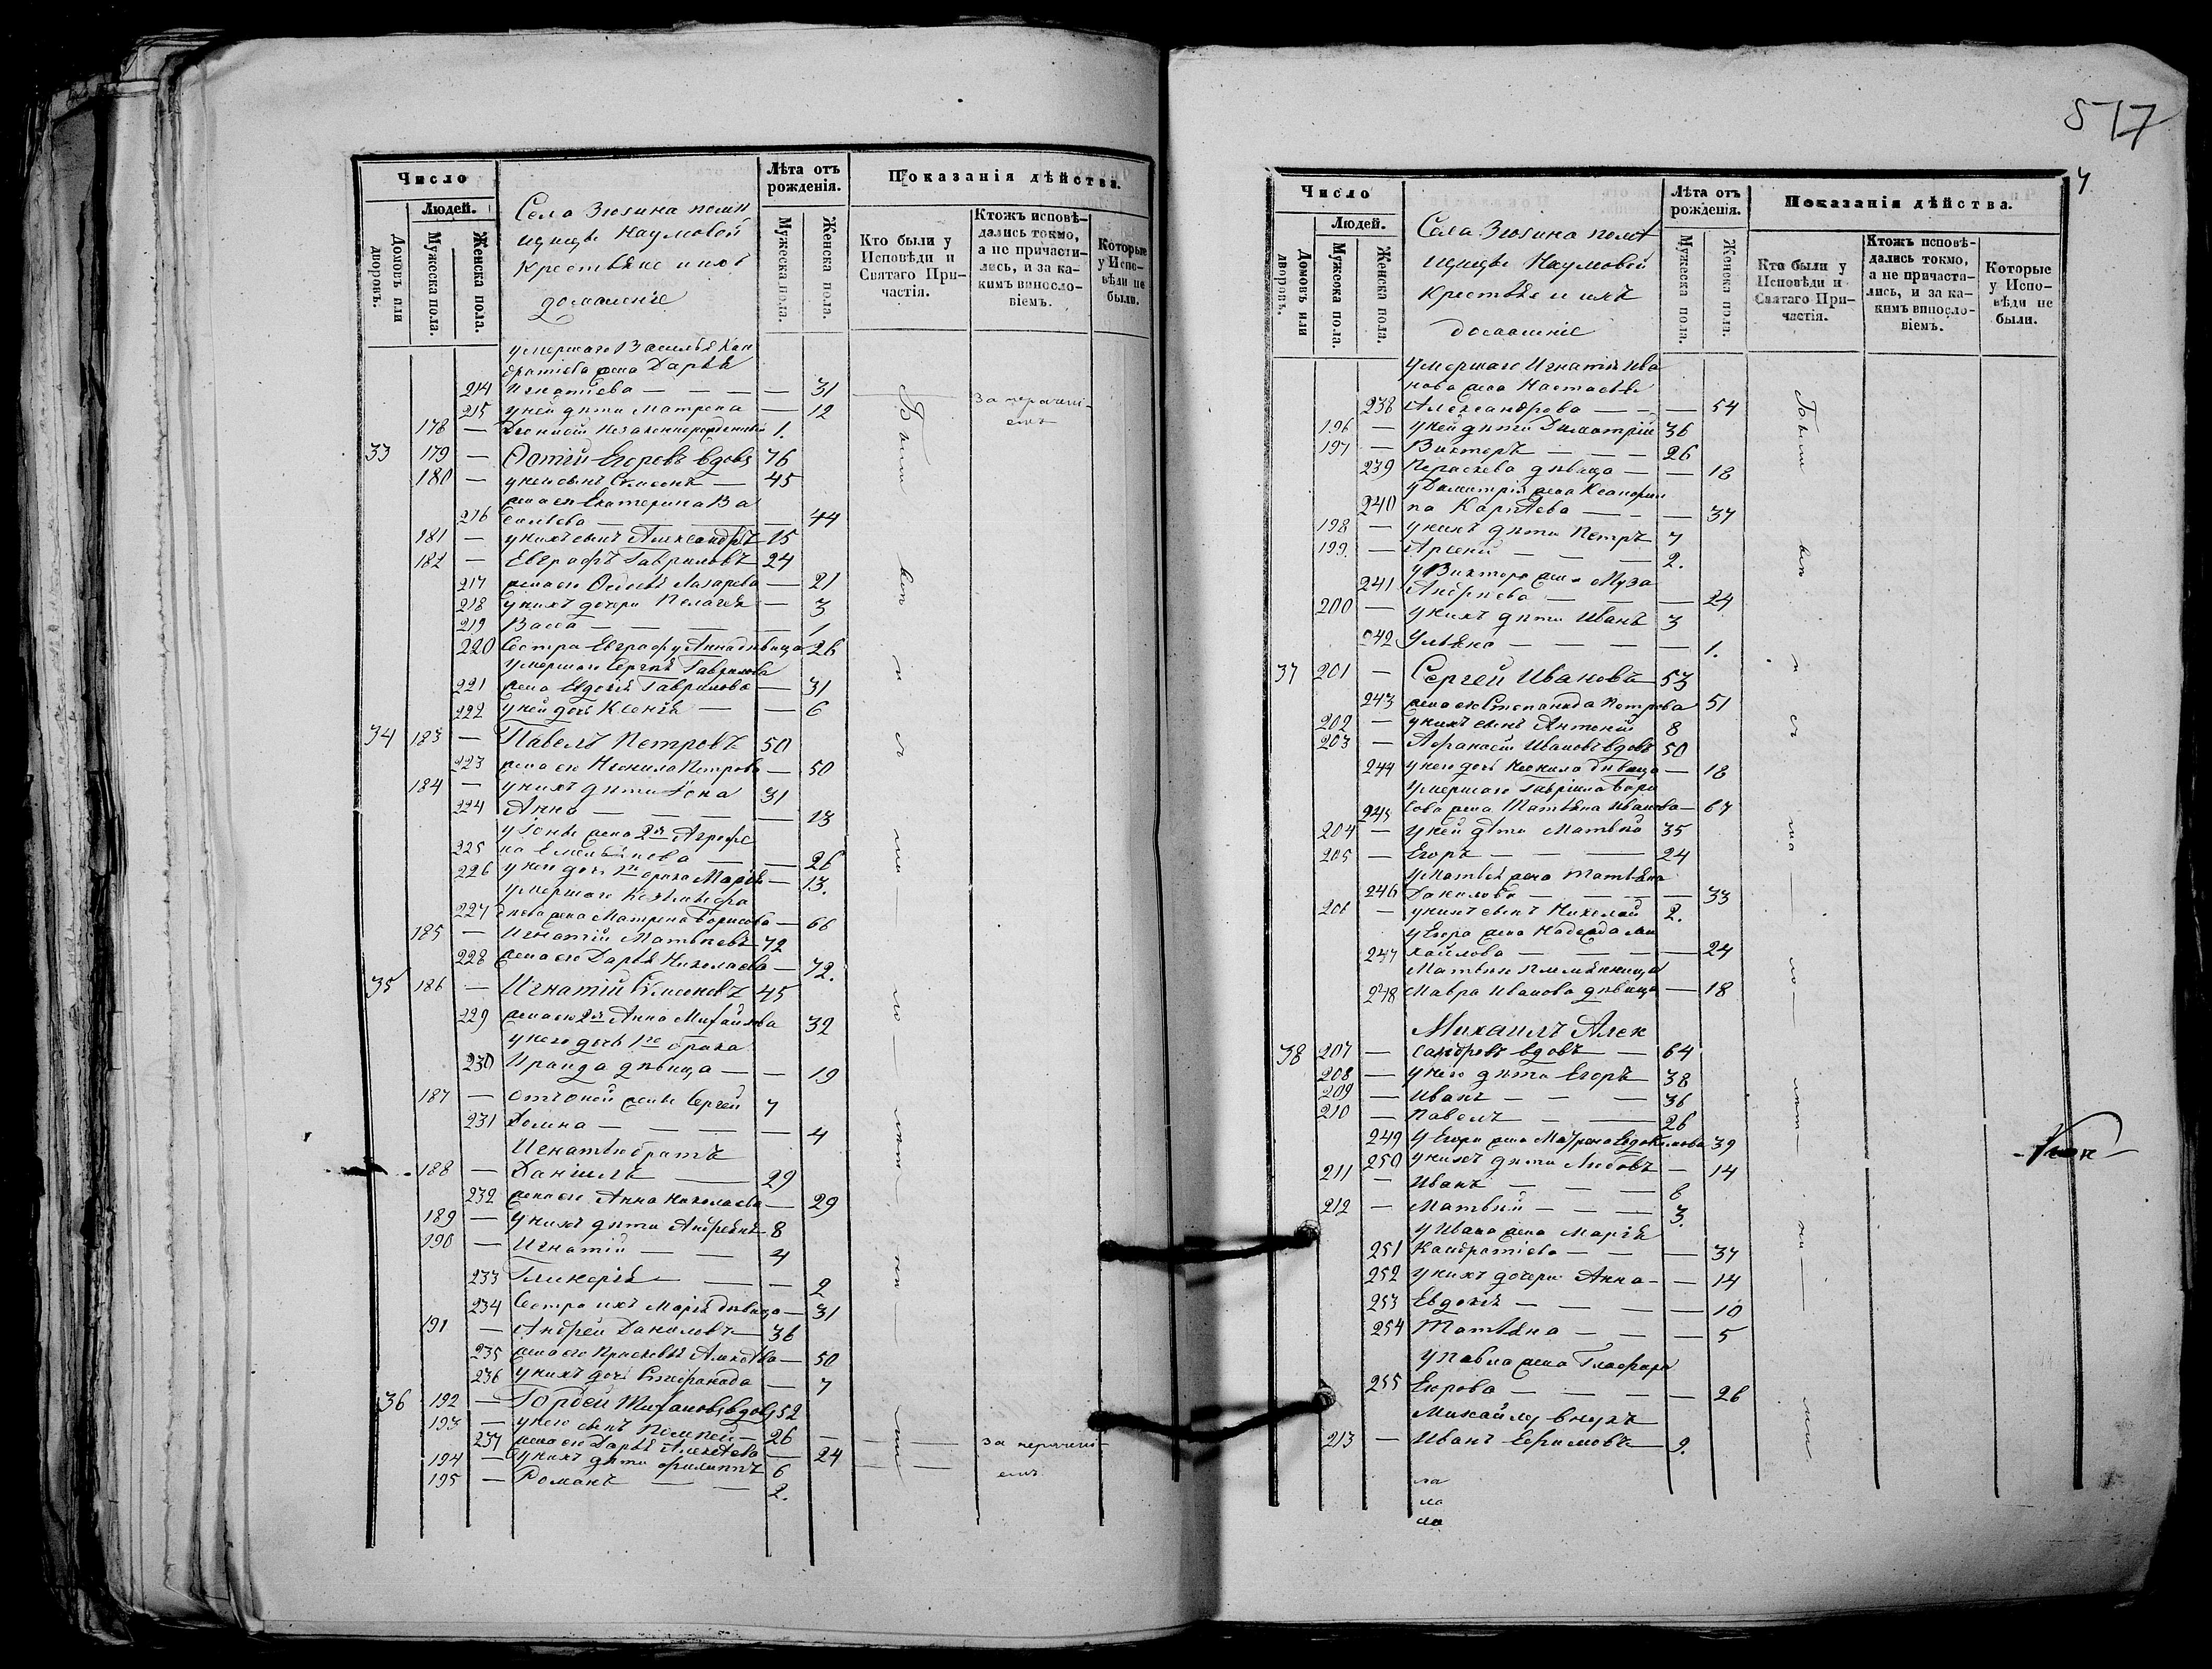 Число
Людей.
Домовъ или дворовъ.
Мужеска пола.
Женска пола.
Села Зюзина помѣ
щицы Наумовой
крестьяне и ихъ
домашніе
Лѣта отъ рожденія.
Мужеска пола.
Женска пола.
Показанія дѣйства.
Кто были у Исповѣди и Святаго Причастія.
Ктожъ исповѣдались токмо, а не причастились, и за какимъ винословіемъ.
Которые у Исповѣди не были.
умершаго Василья Кон
дратьева жена Дарья
214 Игнатіева — — — 31
215 у ней дѣти Матрена — 12
178 — Діонисій незаконнорожденный 1.
33 179 — Фотій Егоровъ вдовъ 76
180 — у него сынъ Симеонъ — 45
жена его Екатерина Ва
216 сильева — — 44
181 — у нихъ сынъ Александръ 15
182 — Евграфъ Гавриловъ 24
217 жена его Лазарева — 21
218 у нихъ дочери Пелагея — 3
219 Васса — — — 1
220 Сестра Евграфу Анна дѣвица 26
Умершаго Сергѣя Гаврилова
221 жена Евдокія Гаврилова — 31
222 у ней дочь Ксенія — — 6
34 183 — Павелъ Петровъ 50
223 жена его Неонила Петрова — 50
184 — у нихъ дѣти Іона 31
224 Анна — — — 13
у Іоны жена 2я Агрофе
225 на Емельянова — — 26
226 у него дочь 1го брака Марія — 13.
умершаго
227 жена Матрена Борисова — 66
185 — Игнатій Матвѣевъ 72
228 жена его Дарья Николаева — 72.
35 186 — Игнатій Симеоновъ 45
229 жена его 2я Анна Михайлова 32
у него дочь 1го брака
230 Ираида дѣвица — — 19
187 — отъ оной жены Сергей 7
231 Домна — — — 4
Игнатью братъ
188 — Даніилъ — 29
232 жена его Анна Николаева — 29
189 — у нихъ дѣти Андреянъ 8
190 — Игнатій — — 4
233 Гликерія — — 2
234 Сестра ихъ Марія дѣвица — 31
191 — Андрей Даниловъ — 36
235 жена его Прасковья — 50
236 у нихъ дочь Степанида — 7
36 192 — Гордей вдовъ 52
193 — у него сынъ — 26 —
237 жена его Дарья Алексѣева — 24
194 — у нихъ дѣти Филиппъ 6
195 — Романъ — — 2.
Были
за
емъ
за
емъ
577
Число
Людей.
Домовъ или дворовъ.
Мужеска пола.
Женска пола.
Села Зюзина помѣ
щицы Наумовой
крестьяне и ихъ
домашніе
Лѣта отъ рожденія.
Мужеска пола.
Женска пола.
Показанія дѣйства.
Кто были у Исповѣди и Святаго Причастія.
Ктожъ исповѣдались токмо, а не причастились, и за какимъ винословіемъ.
Которые у Исповѣди не были.
Умершаго Игнатія Ива
нова жена Настасья
238 Александрова — — — 54
196 — у ней дѣти Димитрій 36
197 — Викторъ — — — 26
239 Параскева дѣвица — — 18
у Димитрія жена
240 на Карпѣева — — — 37
198 — у нихъ дѣти Петръ 7
199. — Арсеній — — — 2.
у Виктора жена Муза
241 Андреева — — — 24
200 — у нихъ дѣти Иванъ 3
242 Ульяна — — — — 1.
37 201 — Сергей Ивановъ 53
243 жена его Степанида Петрова 51
202 — у нихъ сынъ Антоній 8
203 — Афанасій Ивановъ вдовъ 50
244 у него дочь Неонила дѣвица — 18
Умершаго Гавріила Бори
245 сова жена Татьяна Иванова — 67
204 — у ней дѣти Матвѣй 35
205 — Егоръ — — — 24
у Матвѣя жена Татьяна
246 Данилова — — — — 33
206 — у нихъ сынъ Николай 2.
у Егора жена Надежда Ми
247 хайлова — — — — 24
Матвѣю племянница
248 Мавра Иванова дѣвица — 18
Михаилъ Алек
38 207 — сандровъ вдовъ — 64
208 — у него дѣти Егоръ 38
209 — Иванъ — — — 36
210 — Павелъ — — 26
249 у Егора жена Матрена Евдокимова 39
250 у нихъ дѣти Любовь — 14
211 — Иванъ — — — 6
212 — Матвѣй — — — 3.
у Ивана жена Марія
251 Кондратіева — — — 37
252 у нихъ дочери Анна — — 14
253 Евдокія — — — — 10
254 Татьяна — — — 5
у Павла жена Глафира
255 Егорова — — — — 26
Михайлу внукъ
213 — Иванъ Ефимовъ — 9.